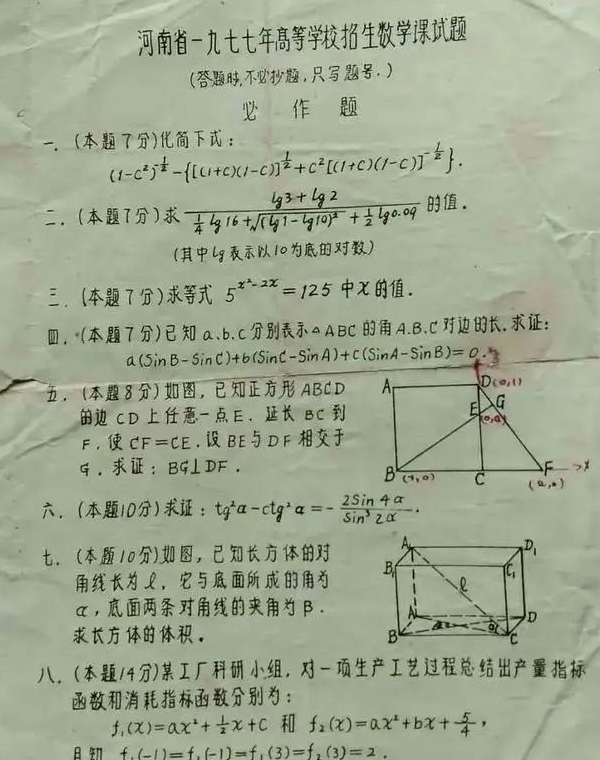 河南省一九七七年高等学校招生数学课试题
(答题时,不必抄题,只写题号.)
必作题
一.(本题7分)化简下式:
(1-C²)^{-1/2}-{[(1+C)(1-C)]^{1/2}+C²[(1+C)(1-C)]^{-1/2}}.
二.(本题7分)求 (lg3+lg2)/(1/4 lg16+√((lg1-lg10)²)+1/2 lg0.09) 的值.
(其中lg表示以10为底的对数)
三.(本题7分)求等式 5^{x²-2x}=125 中x的值.
四.(本题7分)已知a.b.c分别表示△ABC的角A.B.C对边的长.求证:
a(SinB-SinC)+b(SinC-SinA)+C(SinA-SinB)=0.
五.(本题8分)如图,已知正方形ABCD
的边CD上任意一点E.延长BC到
F.使CF=CE.设BE与DF相交于
G.求证:BG⊥DF.
A
D(0,1)
G
E
B
(-1,0)
C
F
x
六.(本题10分)求证:tg²α-ctg²α=-2Sin4α/Sin³2α.
七.(本题10分)如图,已知长方体的对
角线长为ℓ,它与底面所成的角为
α,底面两条对角线的夹角为β.
求长方体的体积.
A₁
D₁
B₁
C₁
ℓ
A
D
B
C
八.(本题14分)某工厂科研小组,对一项生产工艺过程总结出产量指标
函数和消耗指标函数分别为:
f₁(x)=ax²+1/2x+C 和 f₂(x)=ax²+bx+5/4,
且知 f₁(-1)=f₂(-1)=f₁(3)=f₂(3)=2.